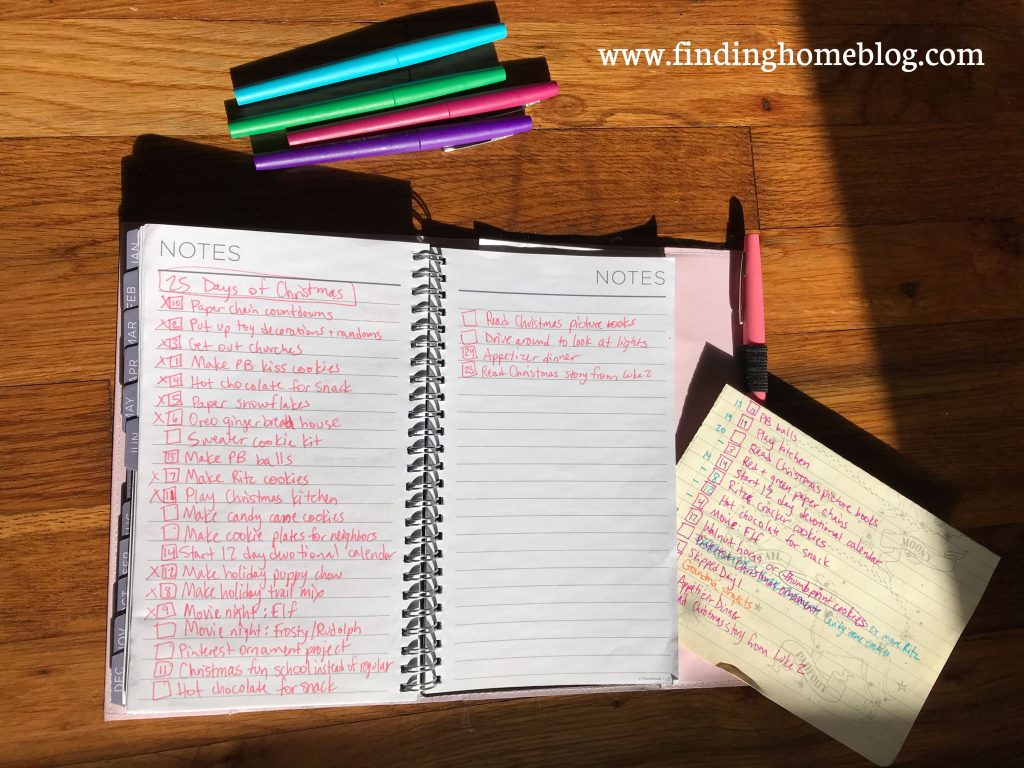 www.findinghomeblog.com
JAN
FEB
MAR
APR
JUN
DEC
NOTES
25 Days of Christmas
X 10 Paper chain countdowns
X 2 Put up toy decorations + randoms
X 13 Get out churches
X 1 Make PB kiss cookies
X 4 Hot chocolate for snack
X 5 Paper snowflakes
X 6 Oreo gingerbread house
Sweater cookie kit
15 Make PB balls
X 7 Make Ritz cookies
X Play Christmas kitchen
Make candy cane cookies
Make cookie plates for neighbors
14 Start 12 day devotional calendar
X 12 Make holiday puppy chow
X 8 Make holiday trail mix
X 9 Movie night: Elf
Movie night: Frosty/Rudolph
Pinterest ornament project
11 Christmas fun school instead of regular
Hot chocolate for snack
NOTES
Read Christmas picture books
Drive around to look at lights
24 Appetizer dinner
25 Read Christmas story from Luke 2
13 PB balls
19 Play kitchen
20 Read Christmas picture books
Red + green paper chains
14 Start 12 day devotional calendar
Ritz cracker cookies
Hot chocolate for snack
Movie: Elf
Walnut hocos or thumbprint cookies or more Ritz
Pinterest Christmas ornament
candy cane cookies
Skipped Day!
Grandma projects
Appetizer Dinner
Christmas story from Luke 2